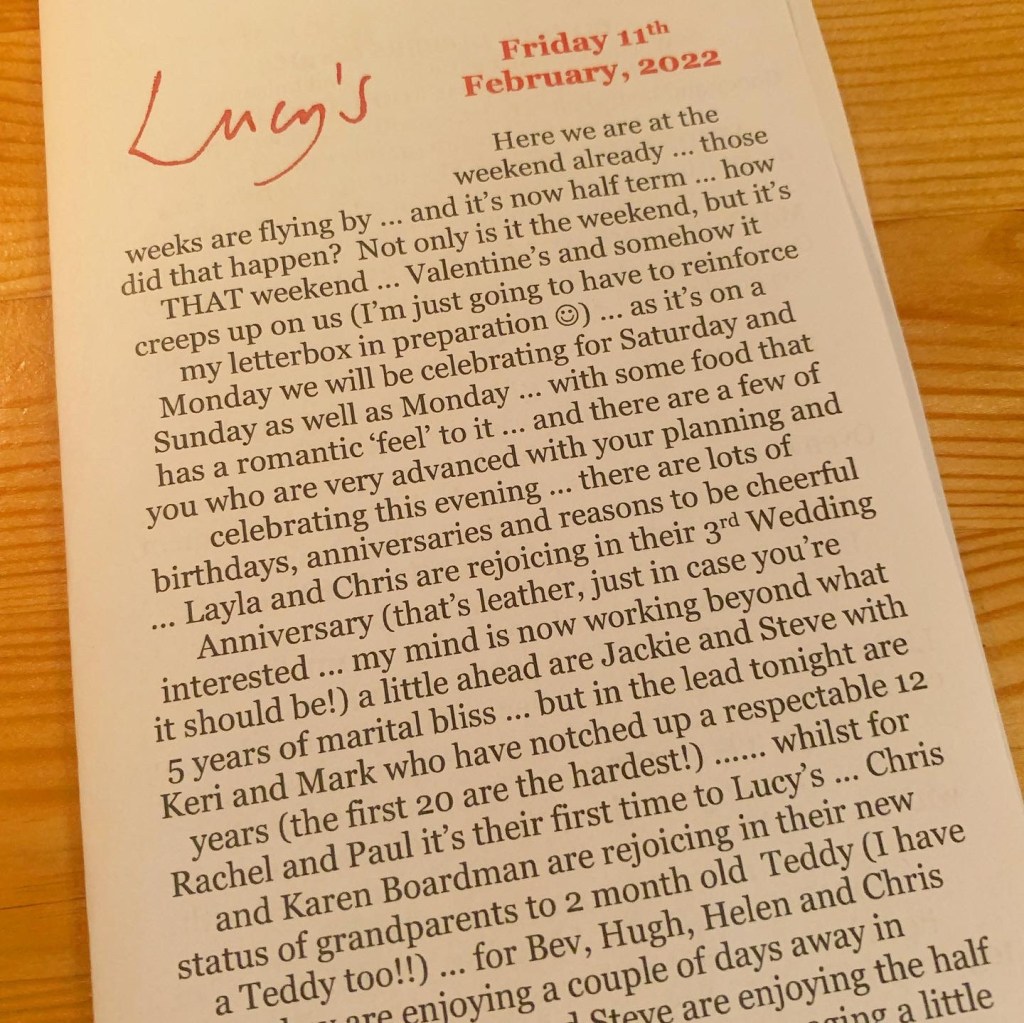 Lucy's
Friday 11th
February, 2022
Here we are at the
weekend already ... those
weeks are flying by ... and it's now half term ... how
did that happen? Not only is it the weekend, but it's
THAT weekend ... Valentine's and somehow it
creeps up on us (I'm just going to have to reinforce
my letterbox in preparation ☺) ... as it's on a
Monday we will be celebrating for Saturday and
Sunday as well as Monday ... with some food that
has a romantic 'feel' to it ... and there are a few of
you who are very advanced with your planning and
celebrating this evening ... there are lots of
birthdays, anniversaries and reasons to be cheerful
... Layla and Chris are rejoicing in their 3rd Wedding
Anniversary (that's leather, just in case you're
interested ... my mind is now working beyond what
it should be!) a little ahead are Jackie and Steve with
5 years of marital bliss ... but in the lead tonight are
Keri and Mark who have notched up a respectable 12
years (the first 20 are the hardest!) ...... whilst for
Rachel and Paul it's their first time to Lucy's ... Chris
and Karen Boardman are rejoicing in their new
status of grandparents to 2 month old Teddy (I have
a Teddy too!!) ... for Bev, Hugh, Helen and Chris
are enjoying a couple of days away in
Steve are enjoying the half
a little